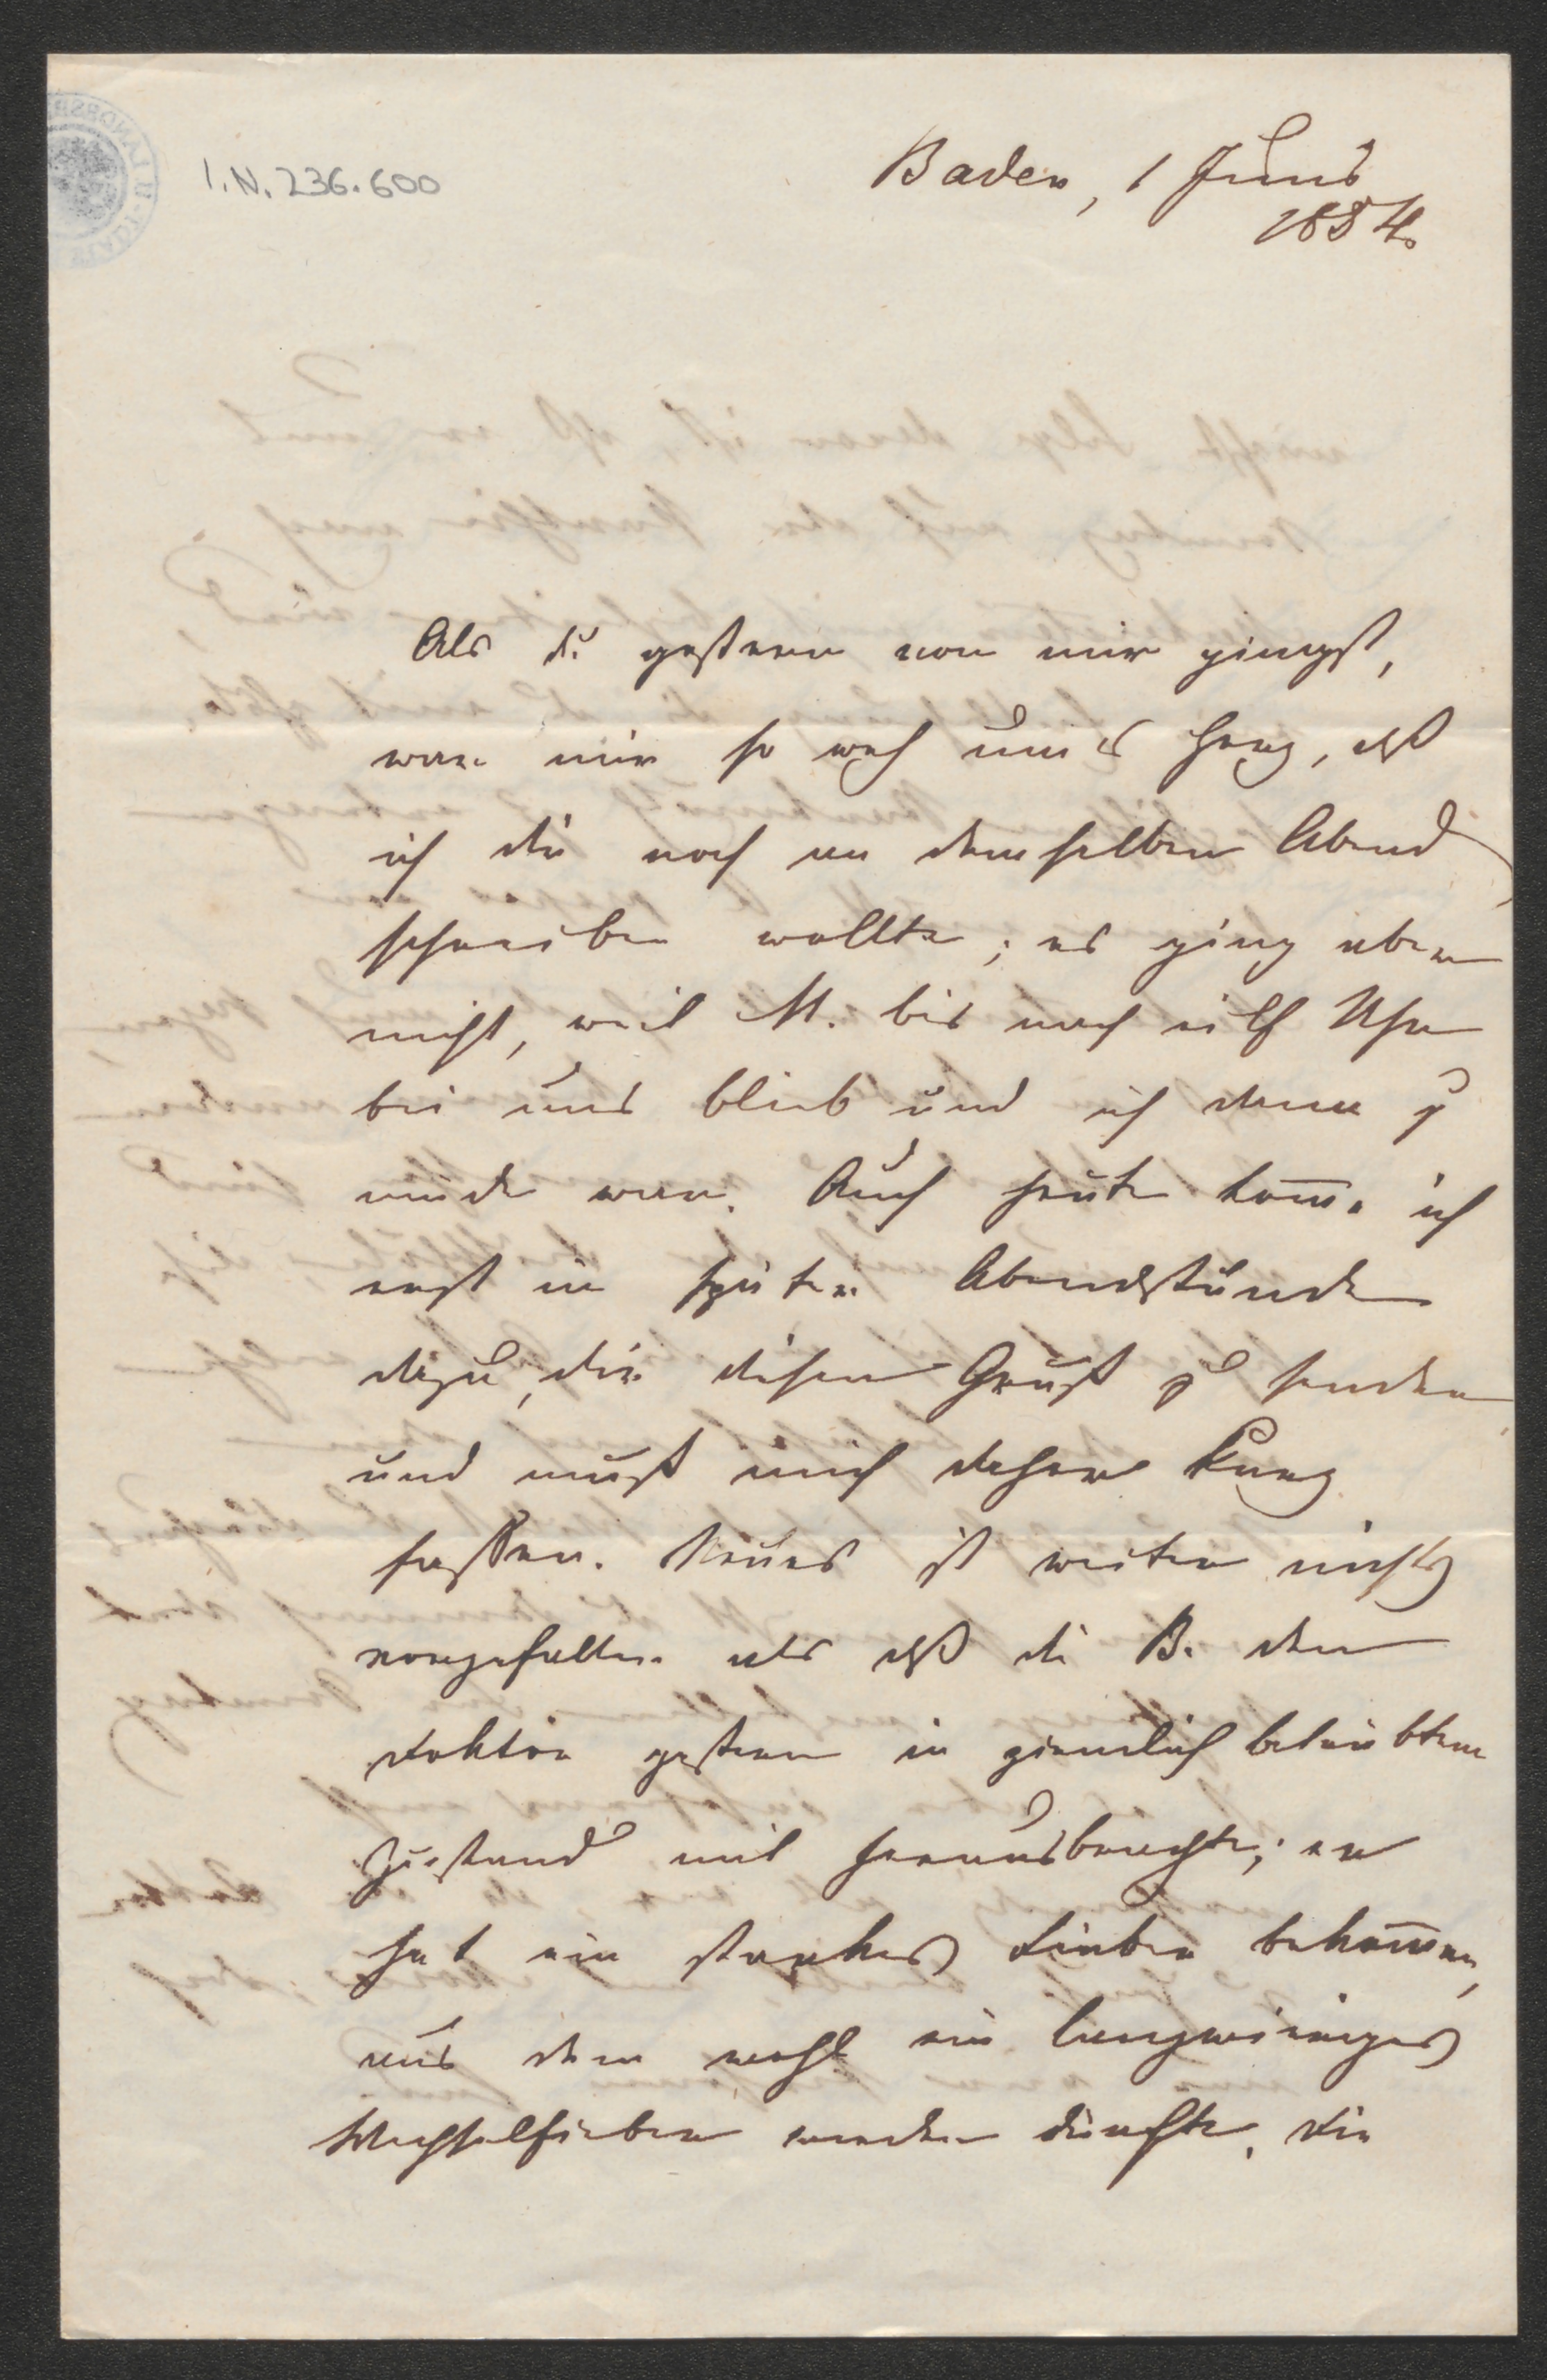 I.N. 236.600
Baden, 1 Juni
1884.
Als du gestern von mir gingst,
war mir so weh ums Herz, daß
ich dir noch an demselben Abend
schreiben wollte; es ging aber
nicht, weil M. bis nach eilf Uhr
bei uns blieb und ich dann zu
müde war. Auch heute kom̅e ich
erst in später Abendstunde
dazu, dir diesen Gruß zu senden
und muß mich daher kurz
fassen. Neues ist weiter nichts
vorgefallen als daß die B. den
Doktor gestern in ziemlich betrübtem
Zustand mit herausbrachte; er
hat ein starkes Fieber bekom̅en,
aus dem wohl ein langwieriges
Wechselfieber werden dürfte. Die